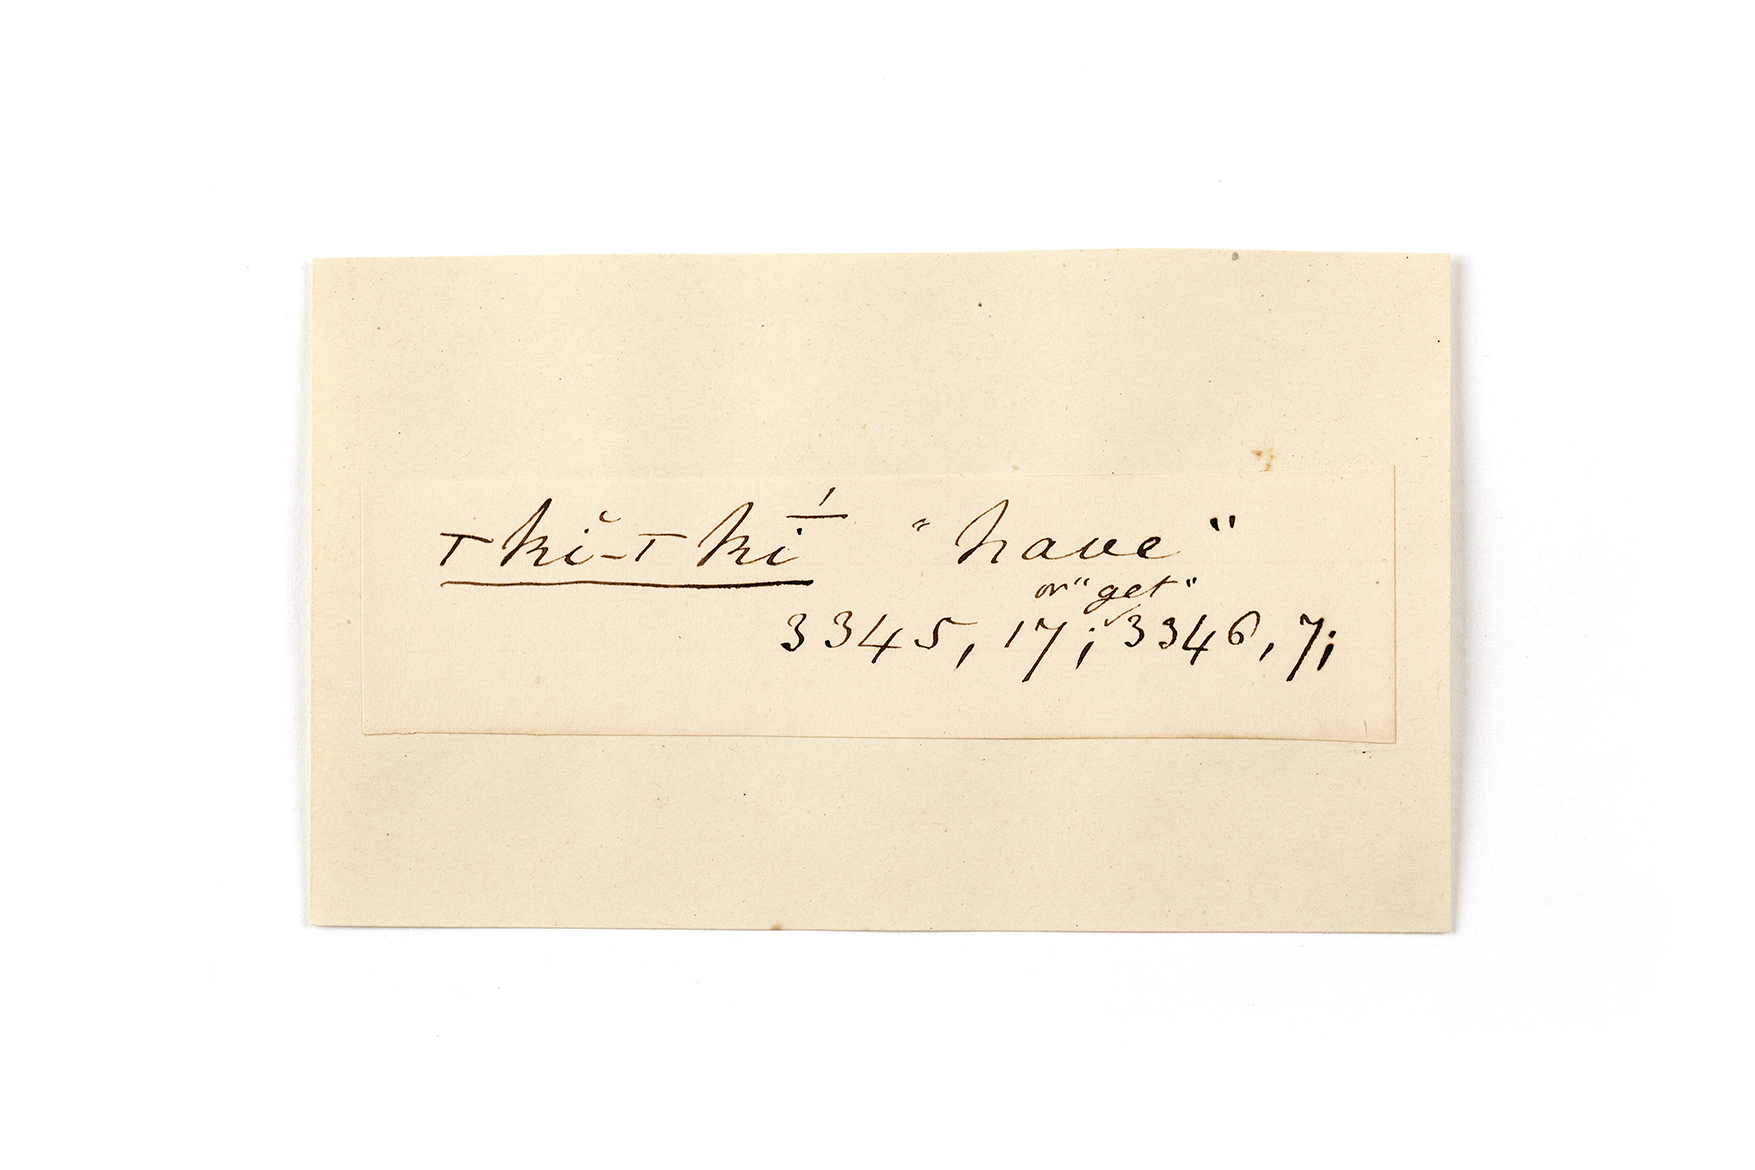 Tkĭ-Tkī́ "have"
or "get"
3345, 17; 3346, 7;